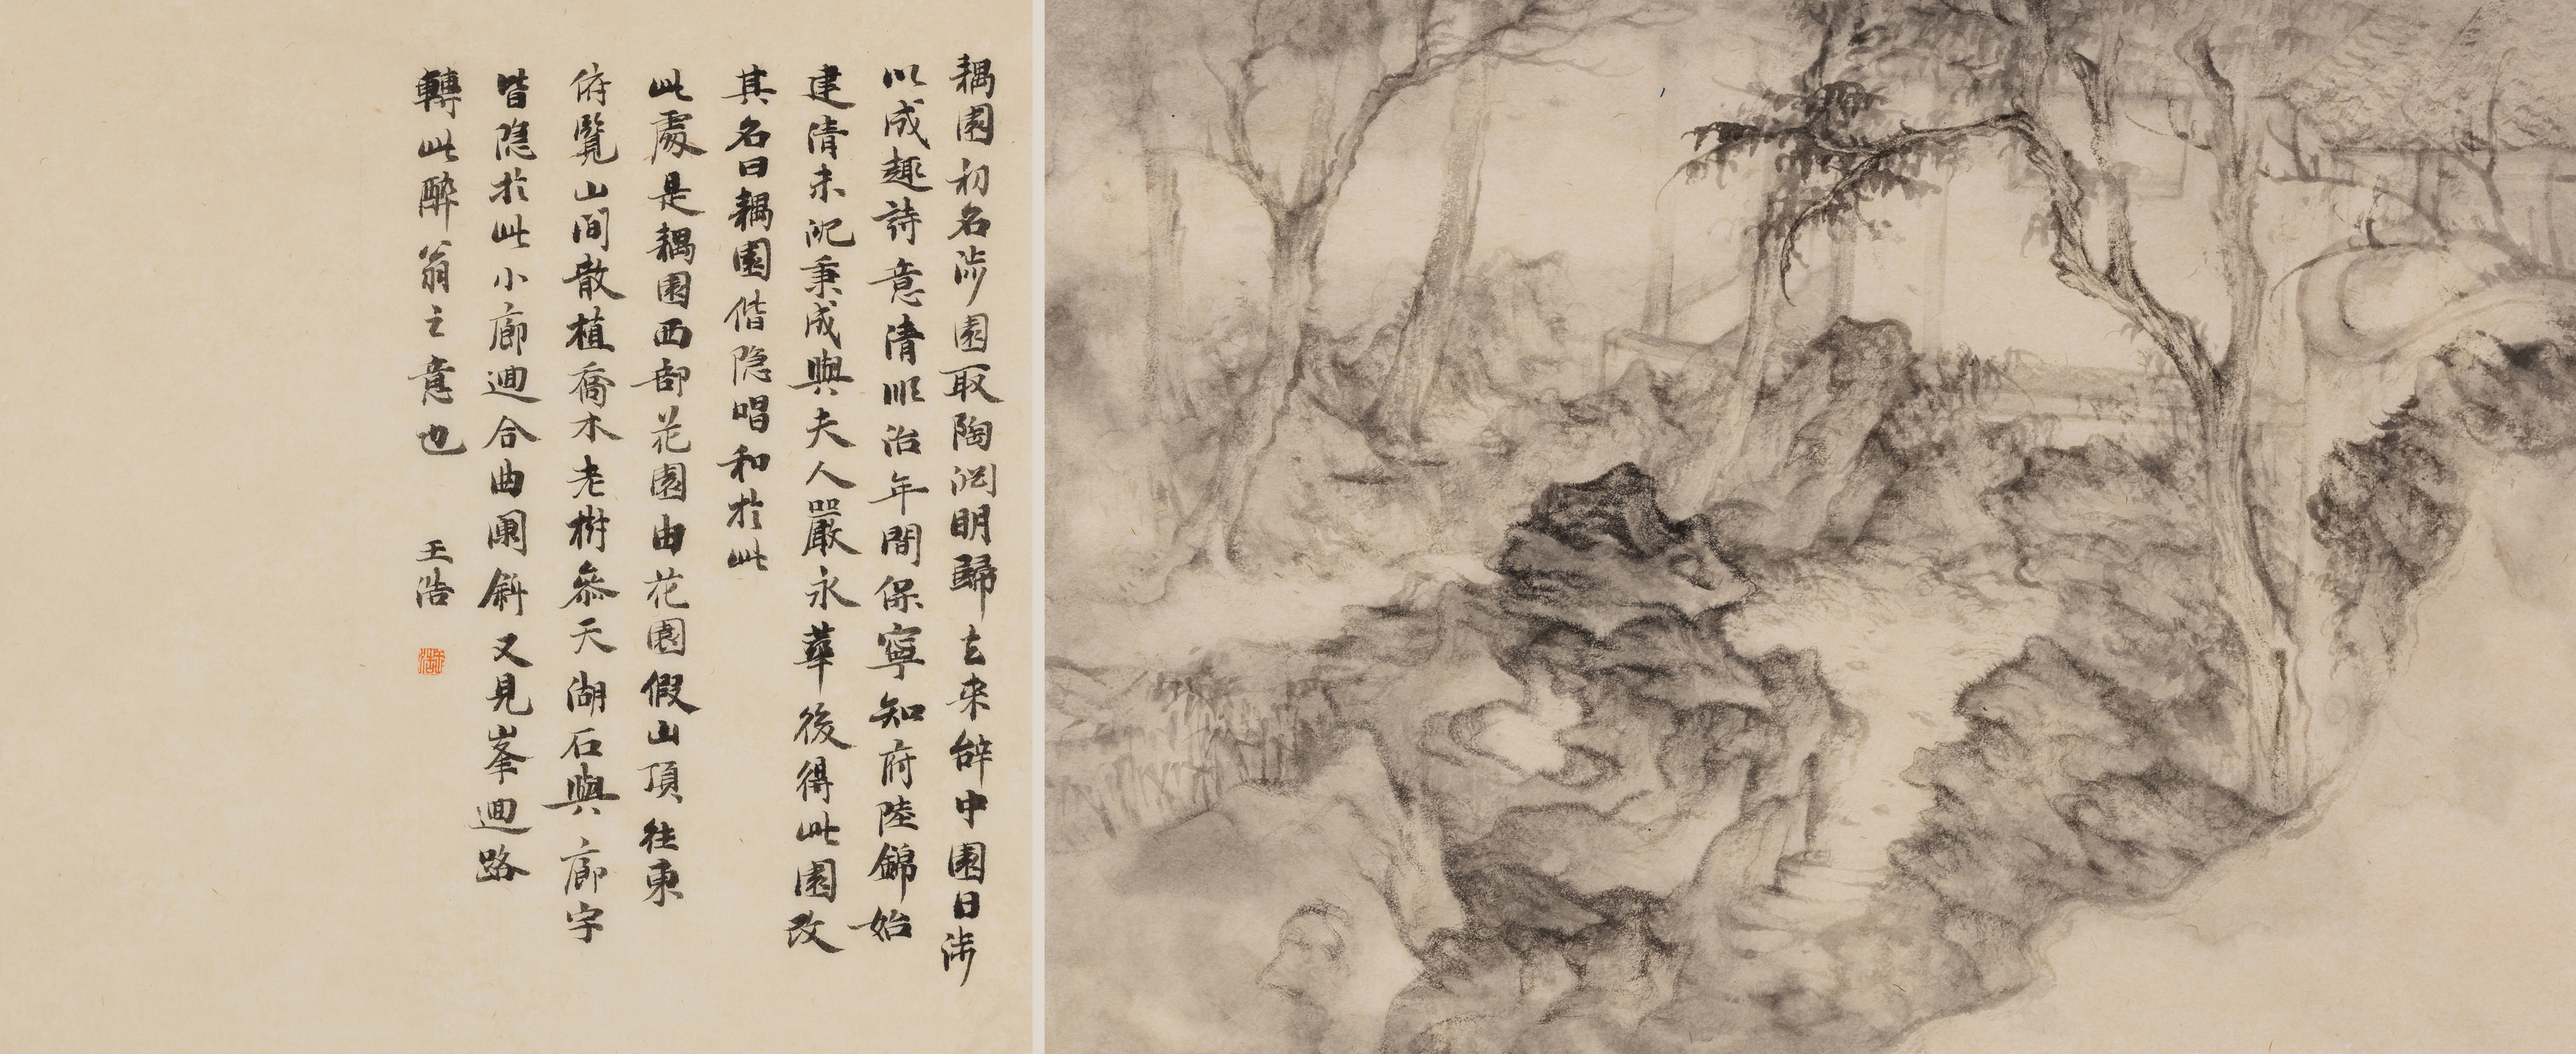 耦園初名涉園取陶淵明歸去来辞中園日涉
以成趣詩意清順治年間保寧知府陸錦始
建清末沈秉成與夫人嚴永華後得此園改
其名曰耦園偕隐唱和於此
此處是耦園西部花園由花園假山頂往東
俯覽山間散植喬木老樹參天湖石與廊宇
皆隐於此小廊迴合曲闌斜又見峯迴路
轉此醉翁之意也
王浩